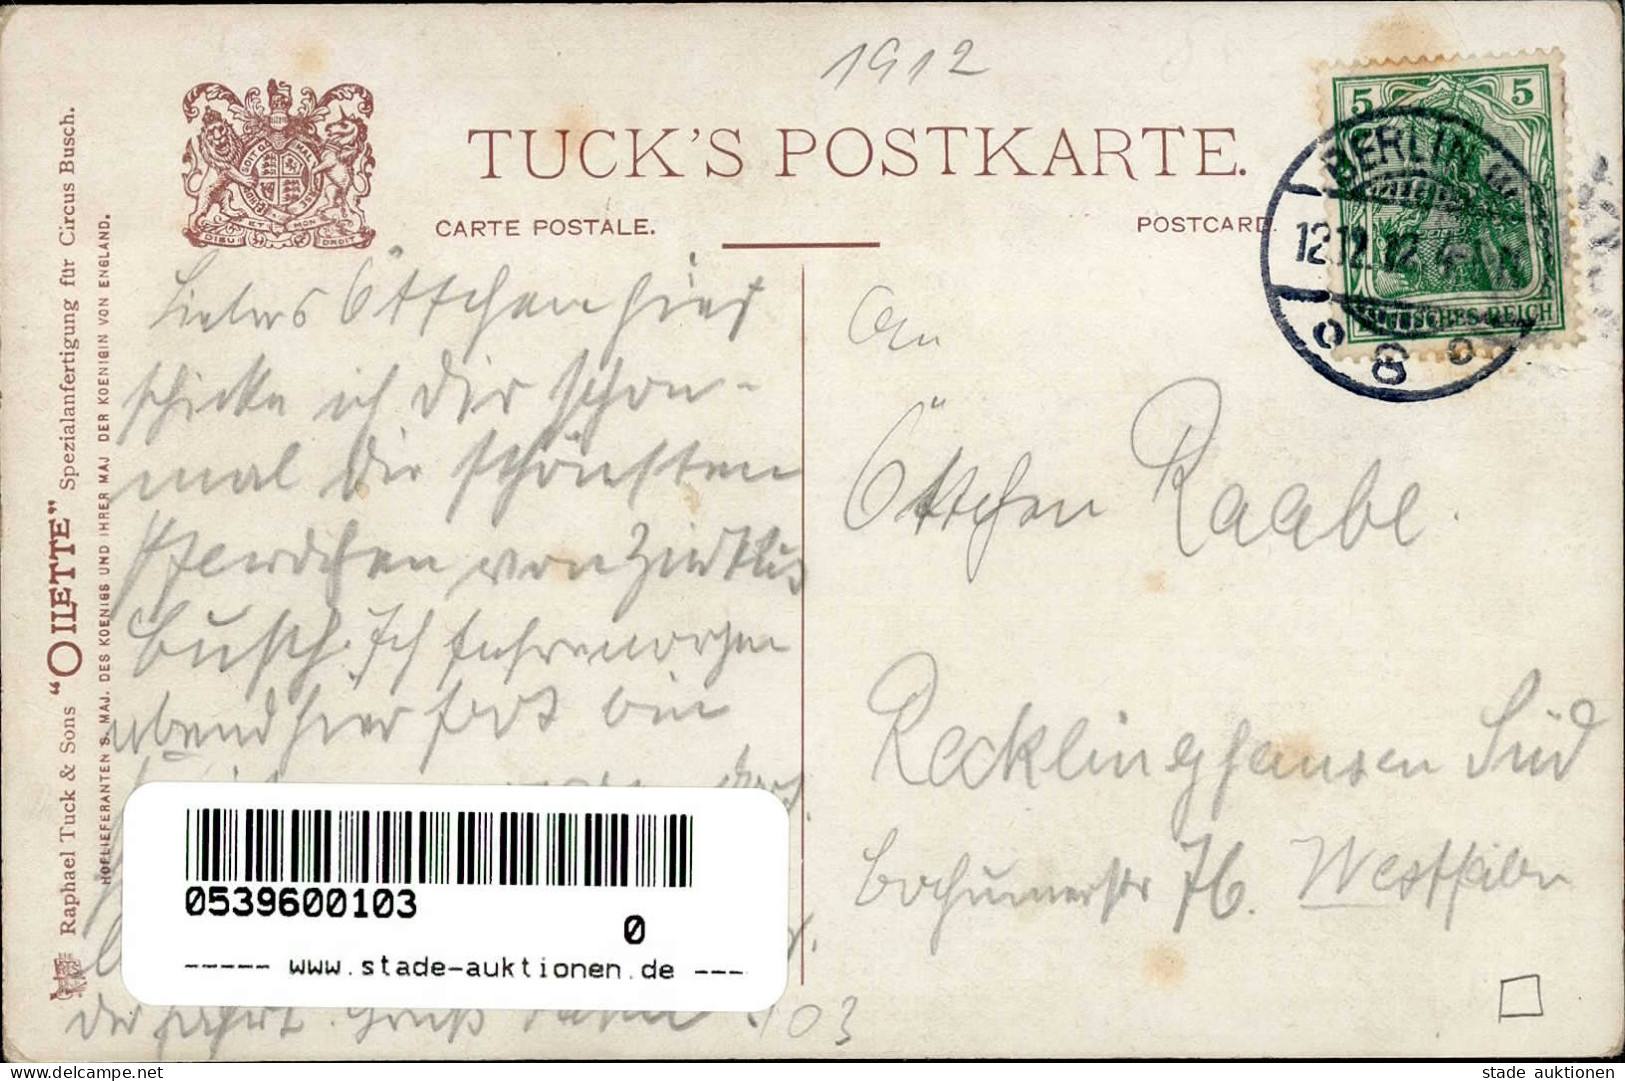 1912
TUCK'S POSTKARTE.
CARTE POSTALE.
POSTCARD.
5 5
DEUTSCHES REICH
BERLIN
12.12.12
8
DIEU ET MON DROIT
Raphael Tuck & Sons "OILETTE" Spezialanfertigung für Circus Busch.
HOFLIEFERANTEN S. MAJ. DES KOENIGS UND IHRER MAJ DER KOENIGIN VON ENGLAND.
Liebes Ottchen hier
schicke ich Dir schon-
mal die schönsten
Pferdchen von Zirkus
Busch. Ich fahre morgen
abend hier fort bin
der Fahrt. Gruß
An
Ottchen Raabe.
Recklinghausen Süd
Bochumerstr 76. Westfalen
103
0539600103
0
----- www.stade-auktionen.de ---
www.delcampe.net
stade auktionen